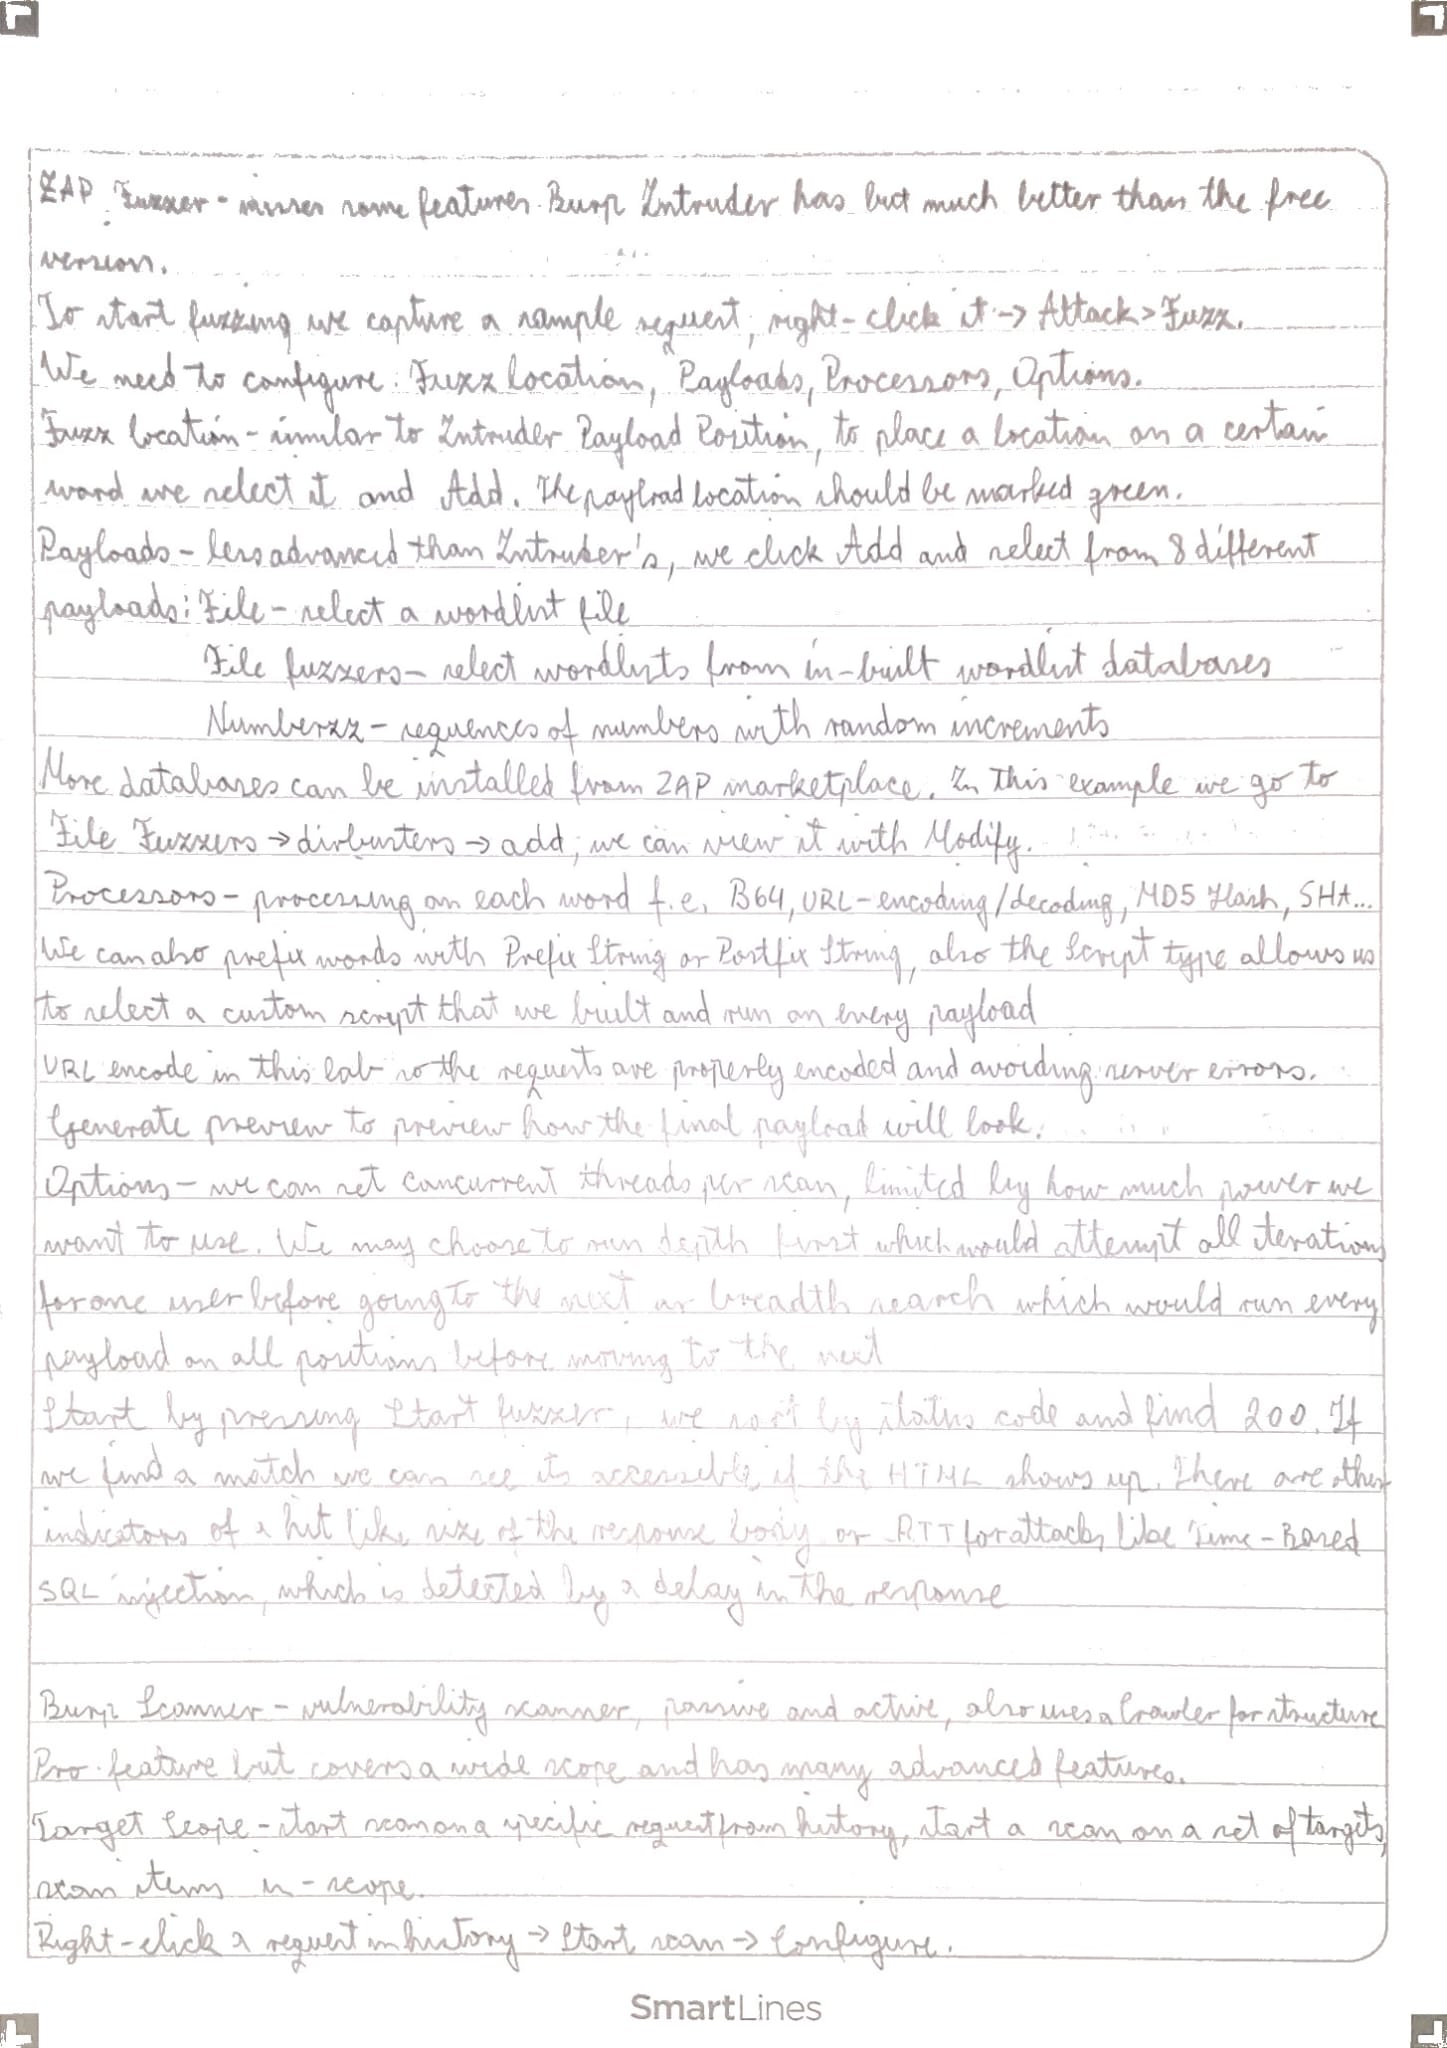 ZAP Fuzzer - misses some features Burp Intruder has but much better than the free
version.
To start fuzzing we capture a sample request, right-click it -> Attack > Fuzz.
We need to configure: Fuzz location, Payloads, Processors, Options.
Fuzz location - similar to Intruder Payload Position, to place a location on a certain
word we select it and Add. The payload location should be marked green.
Payloads - less advanced than Intruder's, we click Add and select from 8 different
payloads: File - select a wordlist file
File fuzzers - select wordlists from in-built wordlist databases
Numberzz - sequences of numbers with random increments
More databases can be installed from ZAP marketplace. In this example we go to
File Fuzzers -> dirbusters -> add, we can view it with Modify.
Processors - processing on each word f.e. B64, URL-encoding/decoding, MD5 Hash, SHA...
We can also prefix words with Prefix String or Postfix String, also the Script type allows us
to select a custom script that we built and run on every payload
URL encode in this lab so the requests are properly encoded and avoiding server errors.
Generate preview to preview how the final payload will look.
Options - we can set concurrent threads per scan, limited by how much power we
want to use. We may choose to run depth first which would attempt all iterations
for one user before going to the next or breadth search which would run every
payload on all positions before moving to the next
Start by pressing Start fuzzer, we sort by status code and find 200. If
we find a match we can see its accessible if the HTML shows up. There are other
indicators of a hit like size of the response body or RTT for attacks like Time-Based
SQL injection, which is detected by a delay in the response
Burp Scanner - vulnerability scanner, passive and active, also uses a Crawler for structure
Pro feature but covers a wide scope and has many advanced features.
Target Scope - start scan on a specific request from history, start a scan on a set of targets,
scan items in-scope.
Right-click a request in history -> Start scan -> Configure.
SmartLines